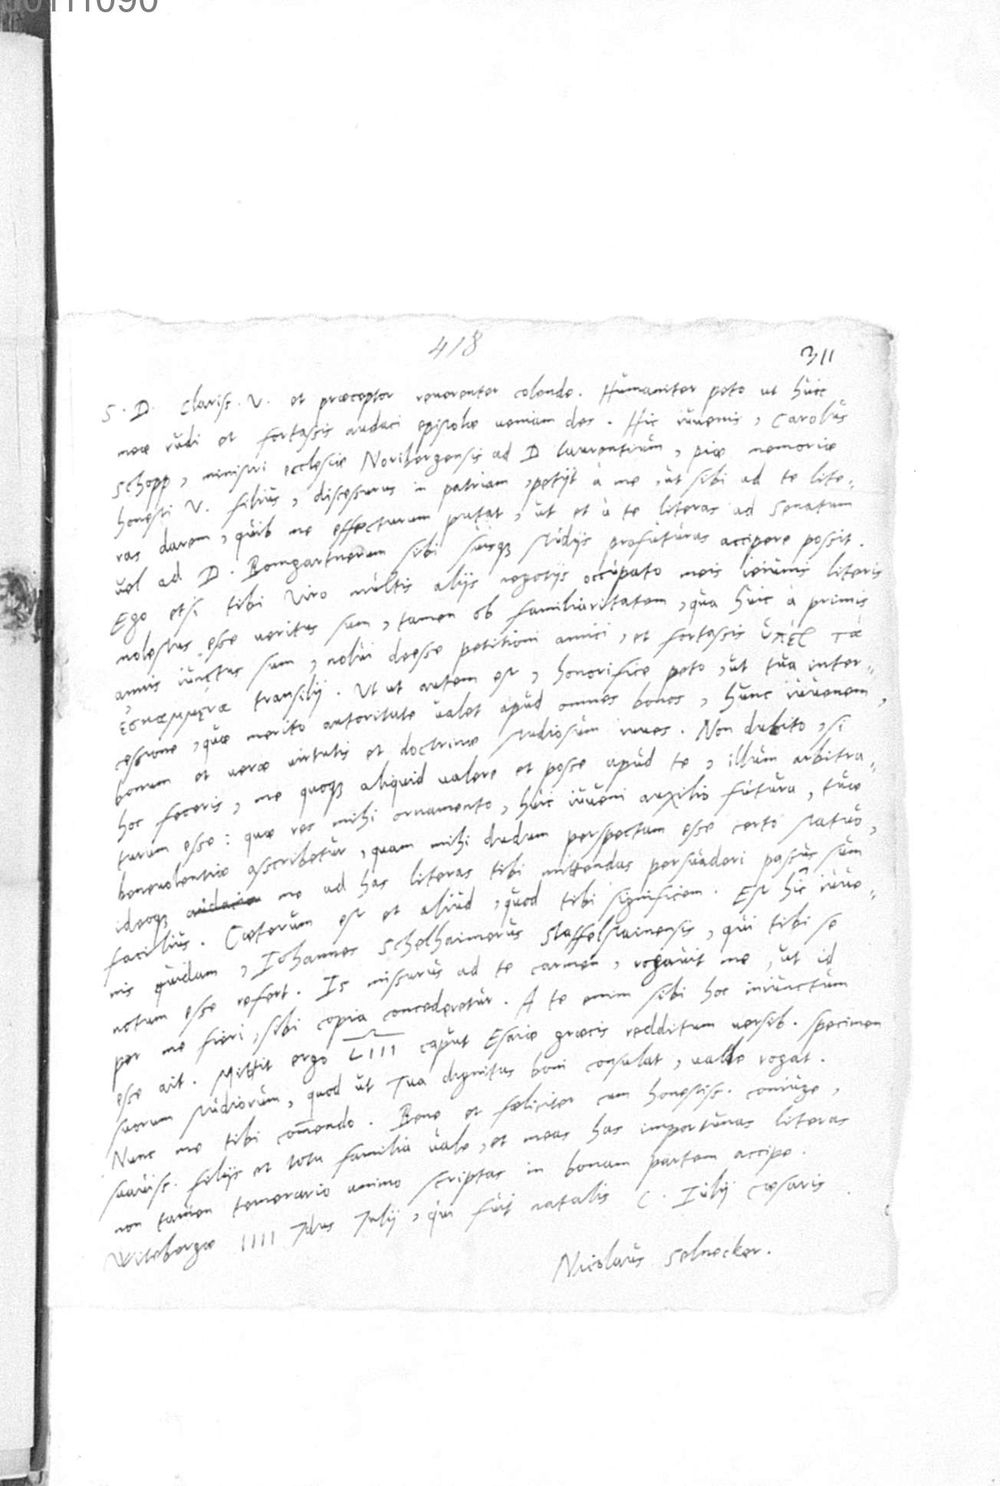 10111090
418
311
S. D. Clariss. V. et praeceptor reverenter colende. Humaniter peto ut huic
meae rudi et fortassis audaci epistolae veniam des. Hic iuvenis, Carolus
Schopp, ministri ecclesiae Noribergensis ad D Laurentium, piae memoriae
honesti V. filius, discessurus in patriam, petijt à me, ut sibi ad te lite-
ras darem, quib me effecturum putat, ut et à te literas ad Senatum
vel ad D. Bomgartnerum sibi suisq studijs profuturas accipere possit.
Ego etsi tibi Viro multis alijs negotijs occupato meis ieiunis literis
molestus esse veritus sum, tamen ob familiaritatem, qua huic à primis
annis iunctus sum, nolui deesse petitioni amici, et fortassis ὑπὲρ τὰ
ἐσκαμμένα transilij. Ut ut autem est, honorifice peto, ut tua inter-
cessione, quae merito autoritate valet apud omnes bonos, hunc iuvenem,
bonum et verae virtutis et doctrinae studiosum iuves. Non dubito, si
hoc feceris, me quoq aliquid valere et posse apud te, illum arbitra-
turum esse: quae res mihi ornamento, huic iuveni auxilio futura, tuae
benevolentiae ascribetur, quam mihi dudum perspectam esse certo statuo,
ideoq me ad has literas tibi mittendas persuaderi passus sum
facilius. Caeterum est et aliud, quod tibi significem. Est hic iuve-
nis quidam, Iohannes Schelhaimerus Staffelstainensis, qui tibi se
notum esse refert. Is missurus ad te carmen, rogavit me, ut id
per me fieri, sibi copia concederetur. A te enim sibi hoc iniunctum
esse ait. Mittit ergo LIII caput Esaiae graecis redditum versib. specimen
suorum studiorum, quod ut Tua dignitas boni consulat, valde rogat.
Nunc me tibi comendo. Bene et foeliciter cum honestiss. coniuge,
suaviss. filijs et tota familia vale, et meas has importunas literas
non tamen temerario animo scriptas in bonam partem accipe.
Witebergae IIII Idus Iulij, qui fuit natalis C. Iulij caesaris.
Nicolaus Selnecker.